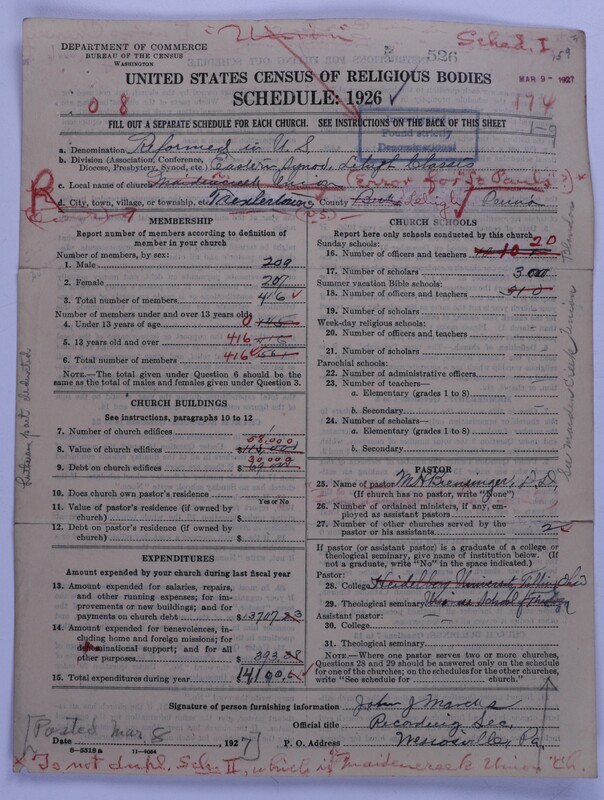 "Union"
Sched. I
DEPARTMENT OF COMMERCE
BUREAU OF THE CENSUS
WASHINGTON
526
MAR 9 - 1927
UNITED STATES CENSUS OF RELIGIOUS BODIES
SCHEDULE: 1926
0 8
174
FILL OUT A SEPARATE SCHEDULE FOR EACH CHURCH. SEE INSTRUCTIONS ON THE BACK OF THIS SHEET
Found strictly
Denominational
a. Denomination Reformed in U S
b. Division (Association, Conference,
Diocese, Presbytery, Synod, etc.) Eastern Synod, Lehigh Classes
c. Local name of church Maidencreek Union (Error for "St Pauls")
R
d. City, town, village, or township, etc. Mertztown County Berks Lehigh Penna
(P.S.)
MEMBERSHIP
Report number of members according to definition of
member in your church
Number of members, by sex:
1. Male 209
2. Female 207
3. Total number of members 416
Number of members under and over 13 years old:
4. Under 13 years of age 0
5. 13 years old and over 416
6. Total number of members 416
NOTE.—The total given under Question 6 should be the
same as the total of males and females given under Question 3.
CHURCH BUILDINGS
See instructions, paragraphs 10 to 12
7. Number of church edifices 1
58,000
8. Value of church edifices $
30000
9. Debt on church edifices $
10. Does church own pastor's residence
Yes or No
11. Value of pastor's residence (if owned by
church) $
12. Debt on pastor's residence (if owned by
church) $
EXPENDITURES
Amount expended by your church during last fiscal year
13. Amount expended for salaries, repairs,
and other running expenses; for im-
provements or new buildings; and for
payments on church debt $ 13707.23
14. Amount expended for benevolences, in-
cluding home and foreign missions; for
denominational support; and for all
other purposes $ 393.28
15. Total expenditures during year 14100.
CHURCH SCHOOLS
Report here only schools conducted by this church
Sunday schools:
16. Number of officers and teachers 20
17. Number of scholars 300
Summer vacation Bible schools:
18. Number of officers and teachers
19. Number of scholars
Week-day religious schools:
20. Number of officers and teachers
21. Number of scholars
Parochial schools:
22. Number of administrative officers
23. Number of teachers—
a. Elementary (grades 1 to 8)
b. Secondary
24. Number of scholars—
a. Elementary (grades 1 to 8)
b. Secondary
PASTOR
25. Name of pastor M H Brensinger, D.D.
(If church has no pastor, write "None")
26. Number of ordained ministers, if any, em-
ployed as assistant pastors
27. Number of other churches served by the
pastor or his assistants 2
If pastor (or assistant pastor) is a graduate of a college or
theological seminary, give name of institution below. (If
not a graduate, write "No" in the space indicated.)
Pastor:
28. College Heidelberg University Tiffin Ohio
29. Theological seminary
Assistant pastor:
30. College
31. Theological seminary
NOTE.—Where one pastor serves two or more churches,
Questions 28 and 29 should be answered only on the schedule
for one of the churches; on the schedules for the other churches,
write "See schedule for church."
Signature of person furnishing information John J Marcks
Official title Recording Sec.
Posted Mar 8
Date , 1927 P. O. Address Wescosville, Pa.
8-5518a 11-9234
x To not dupl. Sch. II, which is "Maidencreek Union" Ch.